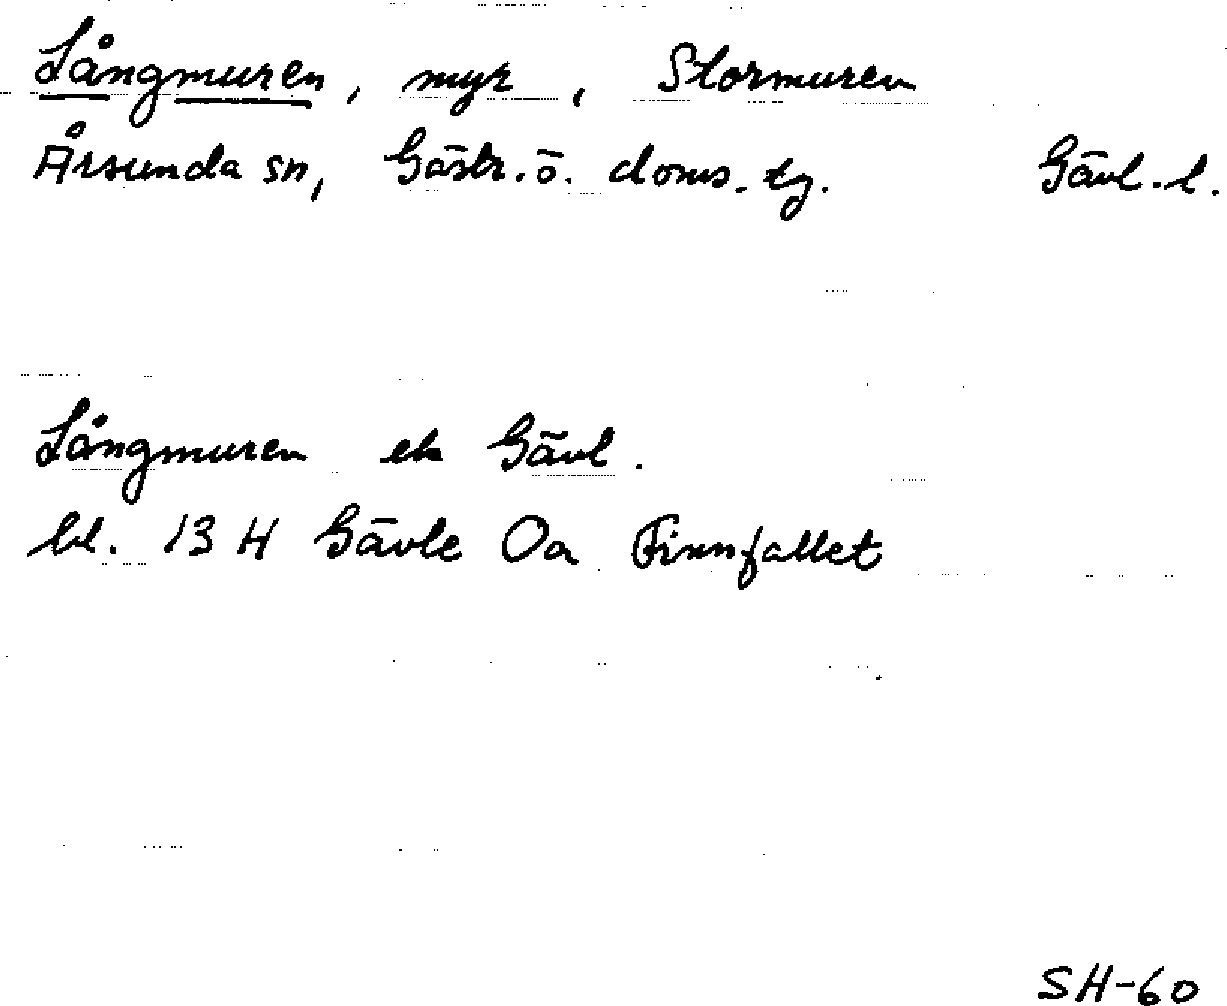 Långmuren, myr, Stormuren
Årsunda sn, Gästr. ö. doms. tg. Gävl. l.
Långmuren ek Gävl.
bl. 13 H Gävle Oa Finnfallet
SH-60